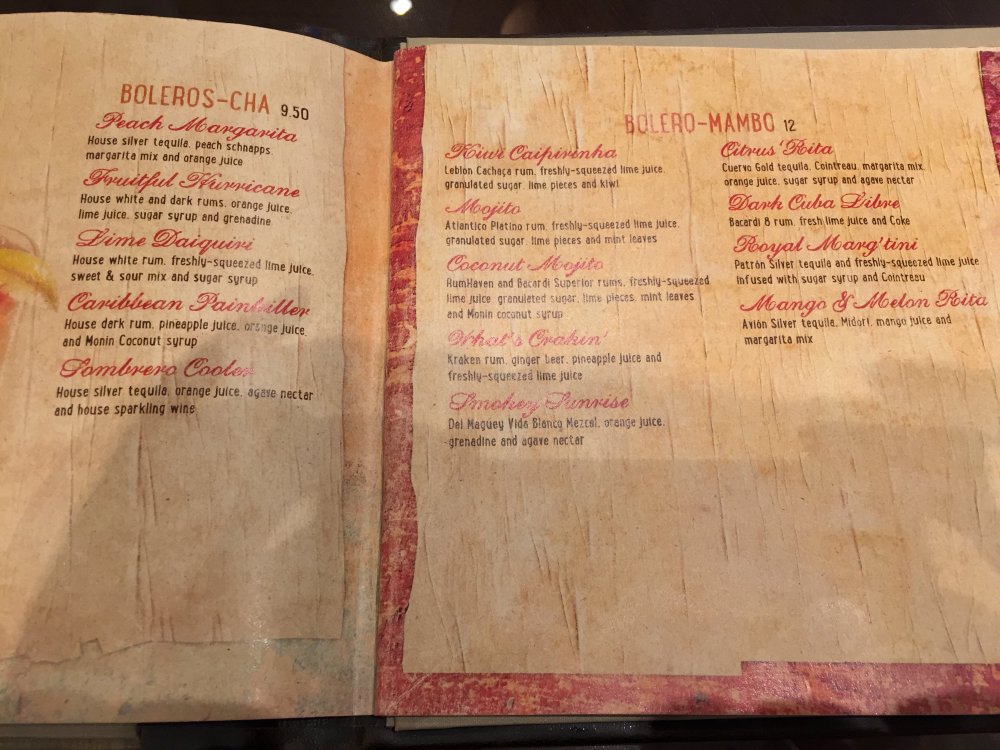 BOLEROS-CHA 9.50
Peach Margarita
House silver tequila, peach schnapps,
margarita mix and orange juice
Fruitful Hurricane
House white and dark rums, orange juice,
lime juice, sugar syrup and grenadine
Lime Daiquiri
House white rum, freshly-squeezed lime juice,
sweet & sour mix and sugar syrup
Caribbean Painkiller
House dark rum, pineapple juice, orange juice,
and Monin Coconut syrup
Sombrero Cooler
House silver tequila, orange juice, agave nectar
and house sparkling wine
BOLERO-MAMBO 12
Kiwi Caipirinha
Leblon Cachaça rum, freshly-squeezed lime juice,
granulated sugar, lime pieces and kiwi
Mojito
Atlantico Platino rum, freshly-squeezed lime juice,
granulated sugar, lime pieces and mint leaves
Coconut Mojito
RumHaven and Bacardi Superior rums, freshly-squeezed
lime juice, granulated sugar, lime pieces, mint leaves
and Monin coconut syrup
What's Crakin'
Kraken rum, ginger beer, pineapple juice and
freshly-squeezed lime juice
Smokey Sunrise
Del Maguey Vida Blanco Mezcal, orange juice,
grenadine and agave nectar
Citrus'Rita
Cuervo Gold tequila, Cointreau, margarita mix,
orange juice, sugar syrup and agave nectar
Dark Cuba Libre
Bacardi 8 rum, fresh lime juice and Coke
Royal Marg'tini
Patrón Silver tequila and freshly-squeezed lime juice
infused with sugar syrup and Cointreau
Mango & Melon Rita
Avión Silver tequila, Midori, mango juice and
margarita mix